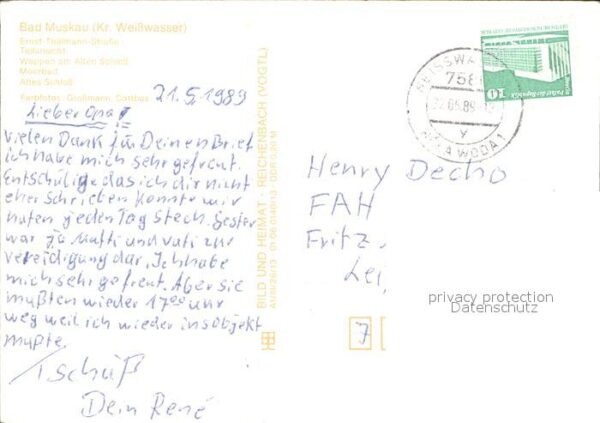 Bad Muskau (Kr. Weißwasser)
Ernst-Thälmann-Straße
Teilansicht
Wappen am Alten Schloß
Moorbad
Altes Schloß
Farbfotos: Großmann, Cottbus
21.5.1989
Lieber Opa!
Vielen Dank für Deinen Brief
ich habe mich sehr gefreut.
Entschülige das ich dir nicht
eher schrieben konnte wir
hatten jeden Tag Stech. Gester
war ja Mutti und Vati zur
Vereidigung dar, Ich habe
mich sehr gefreut. Aber sie
mußten wieder 17°° Uhr
weg weil ich wieder ins objekt
mußte.
Tschüß
Dein René
BILD UND HEIMAT · REICHENBACH (VOGTL)
DDR 0,20 M
10
22.05.89
y
Henry Decho
FAH
Fritz
Lei
7
privacy protection
Datenschutz